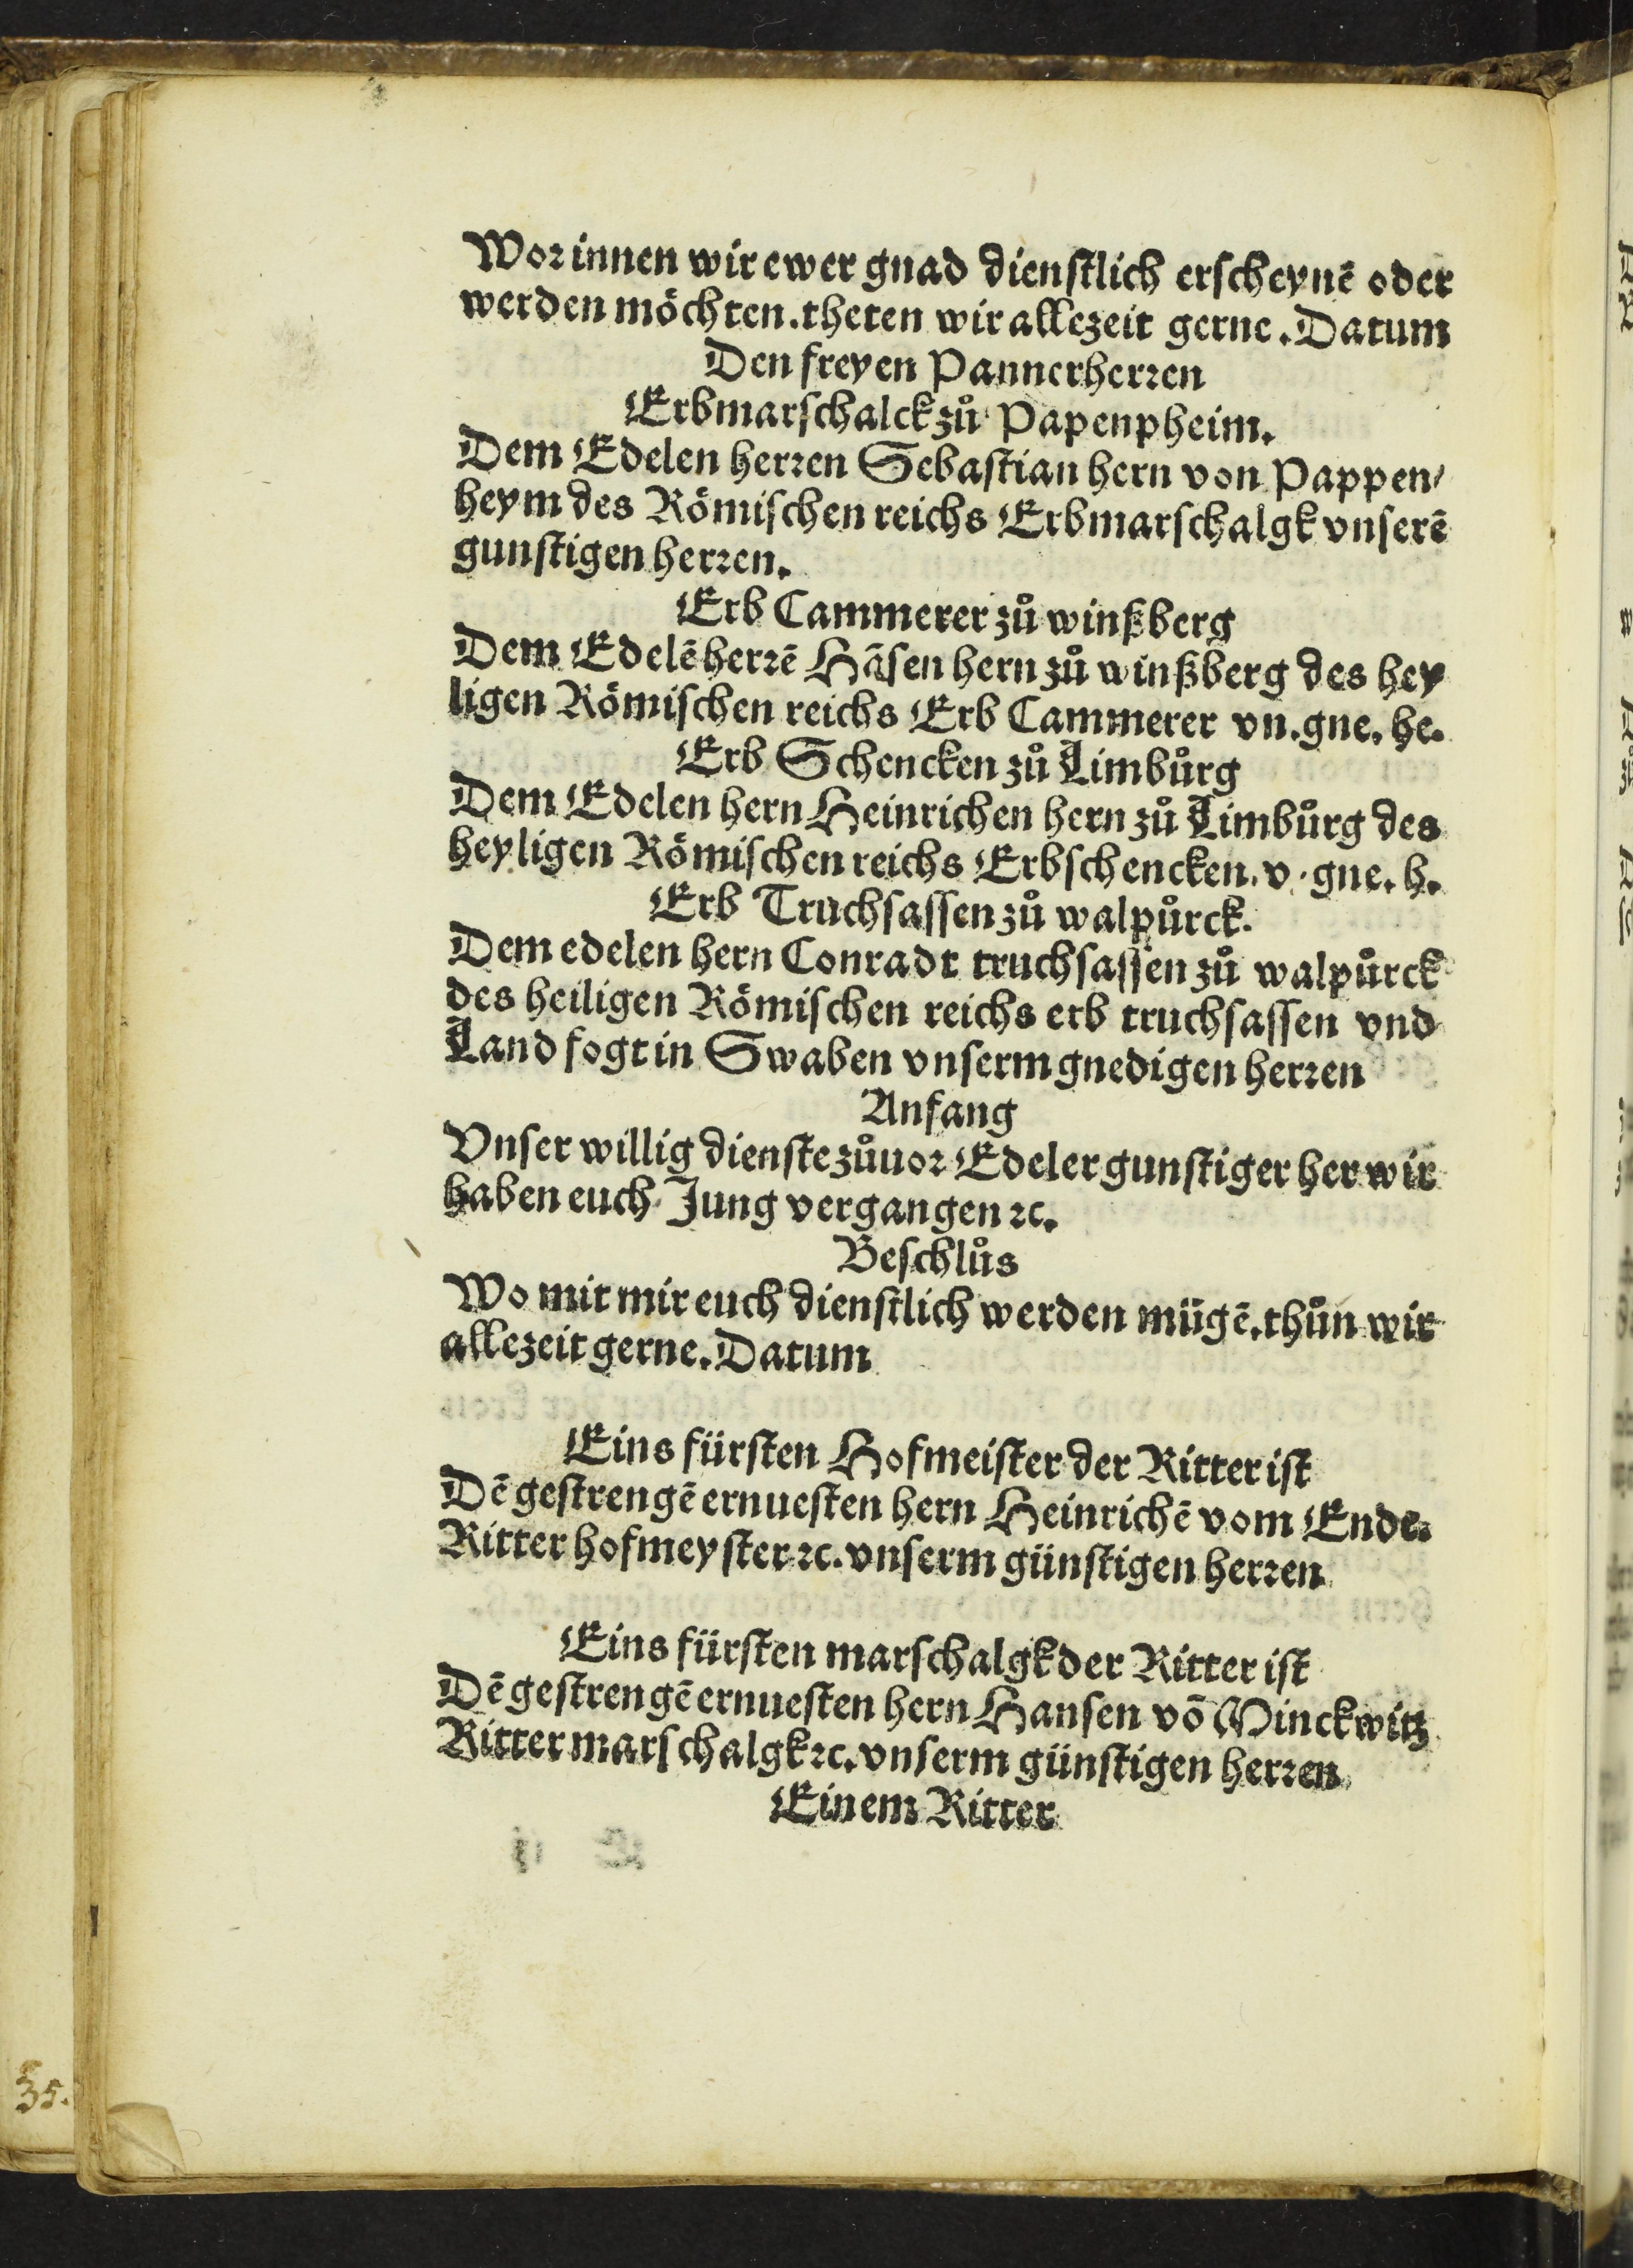 Worinnen wir ewer gnad dienstlich erscheynē oder
werden möchten. theten wir allezeit gerne. Datum
Den freyen Pannerherren
Erbmarschalck zů Papenpheim.
Dem Edelen herren Sebastian hern von Pappen/
heym des Römischen reichs Erbmarschalgk vnserē
gunstigen herren.
Erb Cammerer zů winßberg
Dem Edelē herrē Hāsen hern zů winßberg des hey
ligen Römischen reichs Erb Cammerer vn. gne. he.
Erb Schencken zů Limbůrg
Dem Edelen hern Heinrichen hern zů Limbůrg des
heyligen Römischen reichs Erbschencken. v. gne. h.
Erb Truchsassen zů walpůrck.
Dem edelen hern Conradt truchsassen zů walpůrck
des heiligen Römischen reichs erb truchsassen vnd
Land fogt in Swaben vnserm gnedigen herren
Anfang
Vnser willig dienste zůuor Edeler gunstiger her wir
haben euch Jung vergangen ⁊c.
Beschlůs
Wo mit mir euch dienstlich werden mügē. thůn wir
allezeit gerne. Datum
Eins fürsten Hofmeister der Ritter ist
Dē gestrengē ernuesten hern Heinrichē vom Ende.
Ritter hofmeyster ⁊c. vnserm günstigen herren
Eins fürsten marschalgk der Ritter ist
Dē gestrengē ernuesten hern Hansen vō Minckwitz
Ritter marschalgk ⁊c. vnserm günstigen herren
Einem Ritter
35.